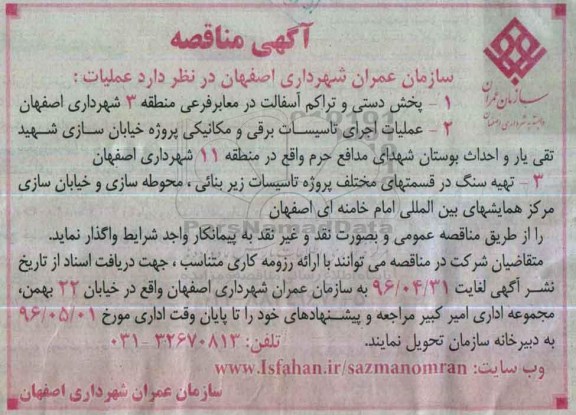 آگهی مناقصه
سازمان عمران
وابسته به شهرداری اصفهان
سازمان عمران شهرداری اصفهان در نظر دارد عملیات :
۱ - پخش دستی و تراکم آسفالت در معابرفرعی منطقه ۳ شهرداری اصفهان
۲ - عملیات اجرای تاسیسات برقی و مکانیکی پروژه خیابان سازی شهید
تقی یار و احداث بوستان شهدای مدافع حرم واقع در منطقه ۱۱ شهرداری اصفهان
۳ - تهیه سنگ در قسمتهای مختلف پروژه تاسیسات زیر بنائی ، محوطه سازی و خیابان سازی
مرکز همایشهای بین المللی امام خامنه ای اصفهان
را از طریق مناقصه عمومی و بصورت نقد و غیر نقد به پیمانکار واجد شرایط واگذار نماید.
متقاضیان شرکت در مناقصه می توانند با ارائه رزومه کاری متناسب ، جهت دریافت اسناد از تاریخ
نشر آگهی لغایت ۹۶/۰۴/۳۱ به سازمان عمران شهرداری اصفهان واقع در خیابان ۲۲ بهمن،
مجموعه اداری امیر کبیر مراجعه و پیشنهادهای خود را تا پایان وقت اداری مورخ ۹۶/۰۵/۰۱
به دبیرخانه سازمان تحویل نمایند. تلفن: ۳۲۶۷۰۸۱۳ -۰۳۱
وب سایت: www.Isfahan.ir/sazmanomran
سازمان عمران شهرداری اصفهان
ParsNamadData